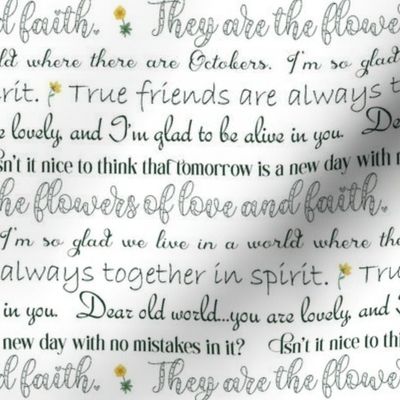 d faith. They are the flowers
ld where there are Octobers. I'm so glad
irit. True friends are always t
e lovely, and I'm glad to be alive in you. De
sn't it nice to think that tomorrow is a new day with n
he flowers of love and faith.
I'm so glad we live in a world where the
always together in spirit. Tru
in you. Dear old world...you are lovely, and I
new day with no mistakes in it? Isn't it nice to thi
d faith. They are the flowers